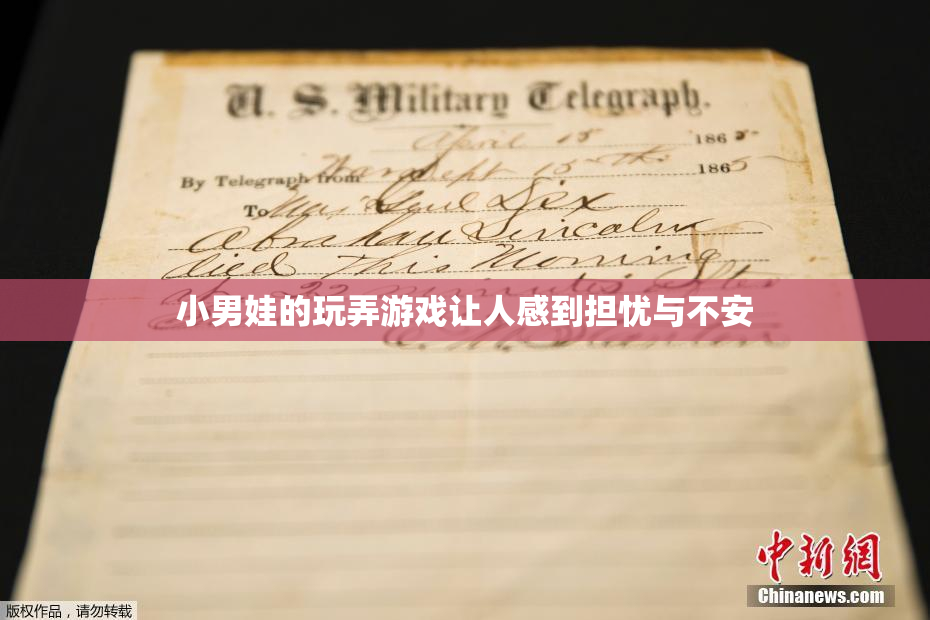 U. S. Military Telegraph.
April 15 1865
By Telegraph from War Dept 15th 1865
To Maj Genl Dix
Abraham Lincoln
died This Morning
22 minutes after
小男娃的玩弄游戏让人感到担忧与不安
E. M. Stanton
中新网
Chinanews.com
版权作品，请勿转载